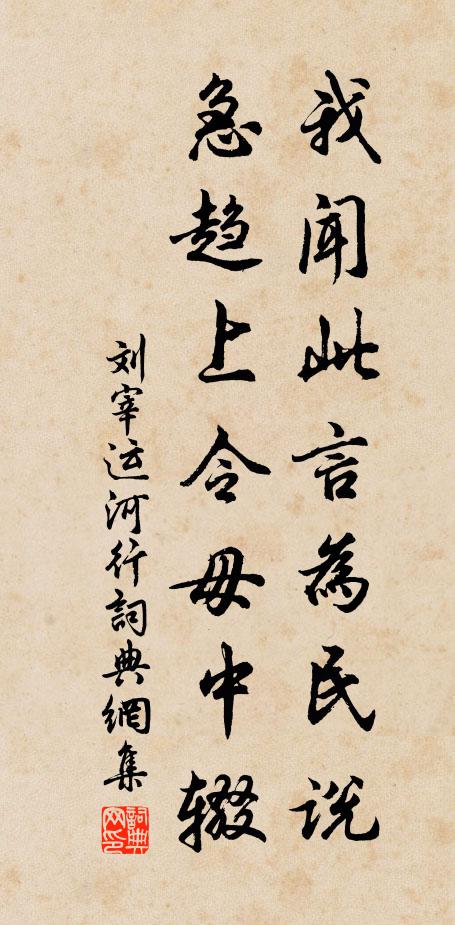 我闻此言為民说
急趋上令毋中辍
刘宰运河行詞典網集
詞典网印